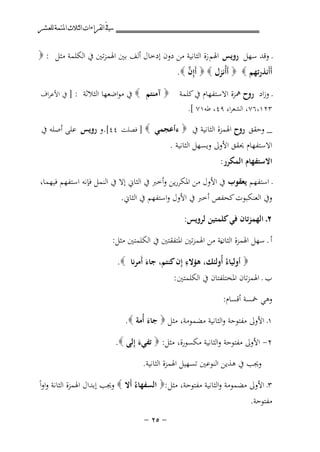 في القراءات الثلاث المتممة للعشر
. وقد سهل رويس الهمزة الثانية من دون إدخال ألف بين الهمزتين في الكلمة مثل : ﴿
أأنذرتهم ﴾ ﴿ أأنزل ﴾ ﴿ أإنَّ ﴾.
. وزاد روح همزة الاستفهام في كلمة ﴿ آمنتم ﴾ في مواضعها الثلاثة : [ في الأعراف
١٢٣،٧٦، الشعراء ٤٩، طه٧١ ].
_ وحقق روح الهمزة الثانية في ﴿ ءأعجمي ﴾ [ فصلت ٤٤].و رويس على أصله في
الاستفهام يحقق الأولى ويسهل الثانية .
الاستفهام المكرر:
. استفهم يعقوب في الأول من المكررين وأخبر في الثاني إلا في النمل فإنه استفهم فيهما،
وفي العنكبوت كحفص أخبر في الأول واستفهم في الثاني.
٢. الهمزتان في كلمتين لرويس:
أ . سهل الهمزة الثانية من الهمزتين المتفقتين في الكلمتين مثل:
﴿ أولياءُ أُولئك، هؤلاءِ إن كنتم، جاءَ أَمرنا ﴾.
ب . الهمزتان المختلفتان في الكلمتين:
وهي خمسة أقسام:
١. الأولى مفتوحة والثانية مضمومة، مثل ﴿ جاءَ أُمة ﴾.
٢- الأولى مفتوحة والثانية مكسورة، مثل: ﴿ تفيءَ إلى ﴾.
ويجب في هذين النوعين تسهيل الهمزة الثانية.
٣. الأولى مضمومة والثانية مفتوحة، مثل:﴿ السفهاءُ ألا ﴾ ويجب إبدال الهمزة الثانة واواً
مفتوحة.
- ٢٥ -